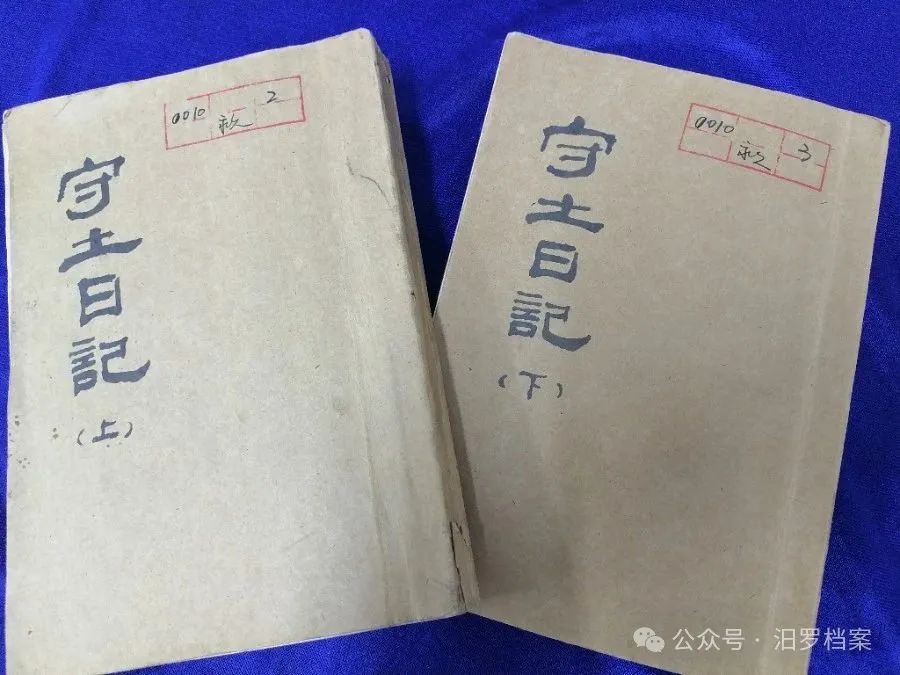 0010 2
永久
守土日記
(上)
0010 3
永久
守土日記
(下)
公众号·汨罗档案